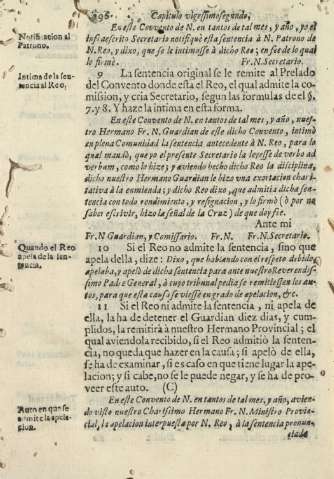 396. Capitulo vigessimosegundo,
En este Convento de N. en tantos de tal mes, y año, yo el
Notificacion al
Patrono.
infraescrito Secretario notifiqué esta sentencia à N. Patrono de
N. Reo, y dixo, que se le intimasse à dicho Reo; en fee de lo qual
lo firmè. Fr. N. Secretario.
Intima de la sen-
tencia al Reo,
9 La sentencia original se le remite al Prelado
del Convento donde esta el Reo, el qual admite la co-
mision, y cria Secretario, segun las formulas de el §.
5. y 8. Y haze la intima en esta forma.
En este Convento de N. en tantos de tal mes, y año, nues-
tro Hermano Fr. N. Guardian de este dicho Convento, intimò
en plena Comunidad la sentencia antecedente à N. Reo, para lo
qual mandò, que yo el presente Secretario la leyesse de verbo ad
verbum, como lo hize; y aviendo hecho dicho Reo la disciplina,
dicho nuestro Hermano Guardian le hizo una exortacion chari-
tativa à la enmienda; y dicho Reo dixo, que admitia dicha sen-
tencia con todo rendimiento, y resignacion, y lo firmò (ò por no
saber escrivir, hizo la señal de la Cruz) de que doy fee.
Ante mi
Fr. N. Guardian, y Comissario. Fr. N. Fr. N. Secretario.
Quando el Reo
apela de la sen-
tencia.
10 Si el Reo no admite la sentencia, sino que
apela della, dize: Dixo, que hablando con el respeto debido
apelaba, y apelò de dicha sentencia para ante nuestro Reverendis-
simo Padre General, à cuyo tribunal pedia se remitiessen los au-
tos, para que esta causa se viesse en grado de apelacion, &c.
11 Si el Reo ni admite la sentencia, ni apela de
ella, la ha de detener el Guardian diez dias, y cum-
plidos, la remitirà à nuestro Hermano Provincial; el
qual aviendola recibido, si el Reo admitiò la senten-
cia, no queda que hazer en la causa; si apelò de ella,
se ha de examinar, si es caso en que tiene lugar la ape-
lacion; y si cabe, no se le puede negar, y se ha de pro-
veer este auto. (C)
Auto en que se
admite la apela-
cion.
En este Convento de N. en tantos de tal mes, y año, avien-
do visto nuestro Charissimo Hermano Fr. N. Ministro Provin-
cial, la apelacion interpuesta por N. Reo, à la sentencia pronun-
ciada